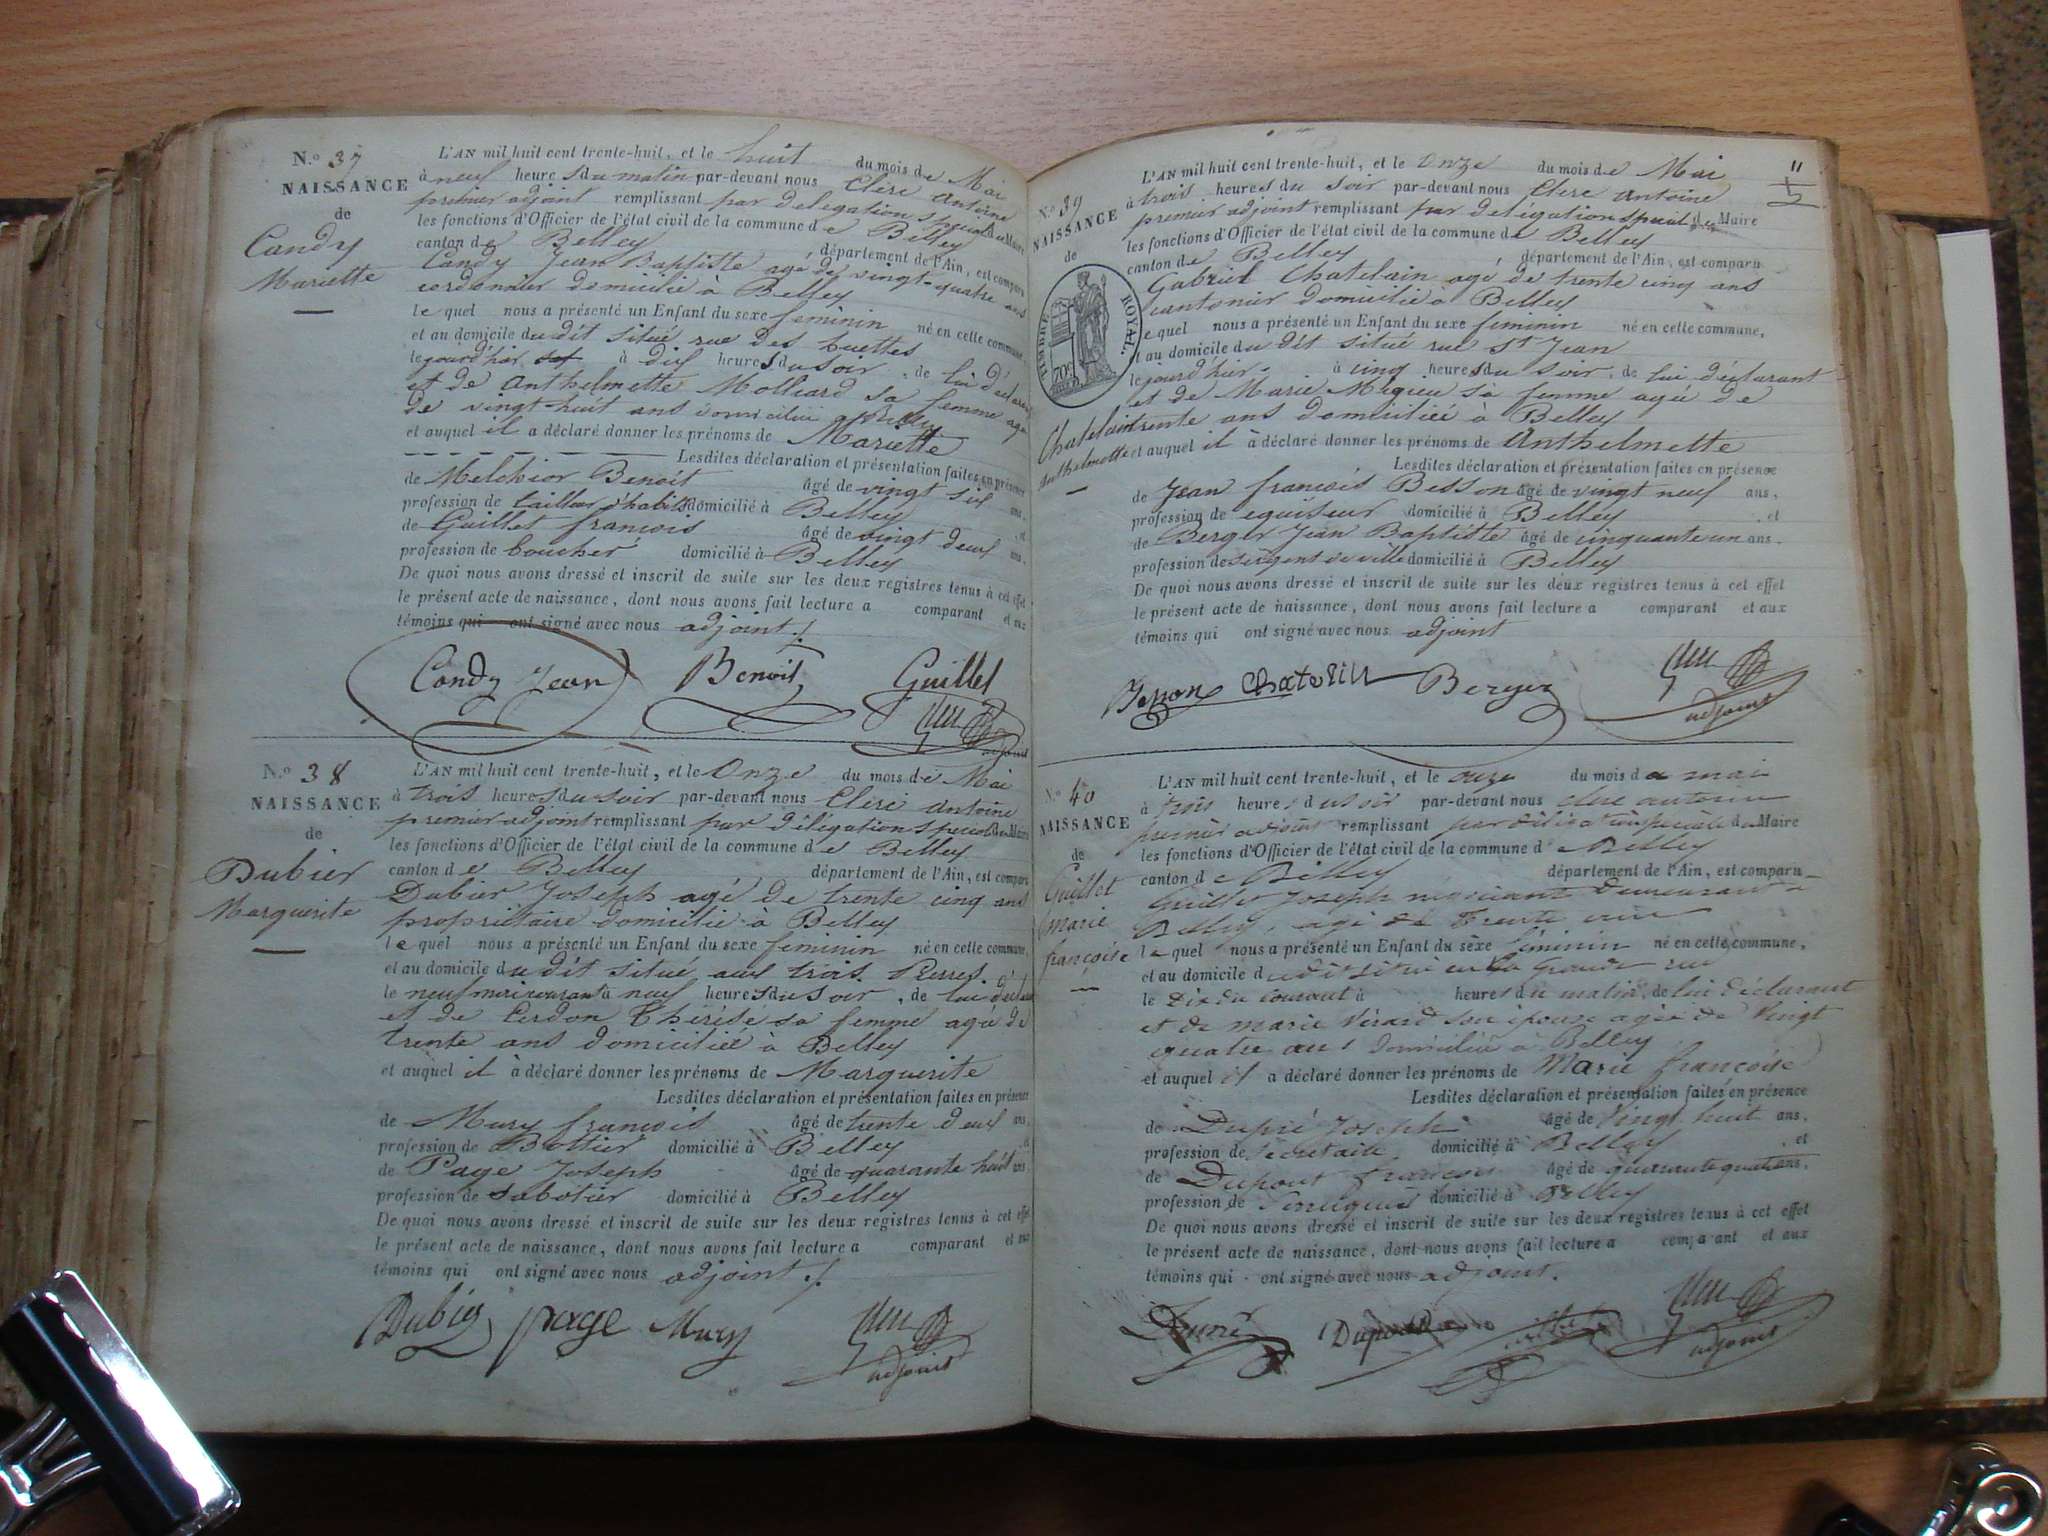 N.º 37
NAISSANCE
de
Candy
Mariette
L'AN mil huit cent trente-huit, et le huit du mois de Mai
à neuf heures du matin par-devant nous Clerc Antoine
premier adjoint remplissant par délégation spéciale du Maire
les fonctions d'Officier de l'état civil de la commune de Belley
canton de Belley département de l'Ain, est comparu
Candy Jean Baptiste agé de vingt-quatre ans
cordonnier domicilié à Belley
lequel nous a présenté un Enfant du sexe feminin né en cette commune,
et au domicile du dit situé rue des buettes
le jourd'hier à dix heures du soir, de lui déclarant
et de Anthelmette Molliard sa femme agée
de vingt-huit ans domiciliée à Belley
et auquel il a déclaré donner les prénoms de Mariette
Lesdites déclaration et présentation faites en présence
de Melchior Benoit âgé de vingt six ans,
profession de tailleur d'habits domicilié à Belley, et
de Guillet françois âgé de vingt deux ans,
profession de boucher domicilié à Belley
De quoi nous avons dressé et inscrit de suite sur les deux registres tenus à cet effet
le présent acte de naissance, dont nous avons fait lecture a comparant et aux
témoins qui ont signé avec nous adjoint ./.
Candy Jean Benoit Guillet
Clerc
adjoint
N.º 38
NAISSANCE
de
Dubier
Marguerite
L'AN mil huit cent trente-huit, et le Onze du mois de Mai
à trois heures du soir par-devant nous Clerc Antoine
premier adjoint remplissant par délégation spéciale du Maire
les fonctions d'Officier de l'état civil de la commune de Belley
canton de Belley département de l'Ain, est comparu
Dubier Joseph agé de trente cinq ans
propriétaire domicilié à Belley
lequel nous a présenté un Enfant du sexe feminin né en cette commune,
et au domicile du dit situé aux trois Pierres
le neuf mai courant à neuf heures du soir, de lui déclarant
et de Cerdon Thérèse sa femme agée de
trente ans domiciliée à Belley
et auquel il à déclaré donner les prénoms de Marguerite
Lesdites déclaration et présentation faites en présence
de Mury françois âgé de trente deux ans,
profession de Bottier domicilié à Belley, et
de Page Joseph âgé de quarante huit ans,
profession de sabotier domicilié à Belley
De quoi nous avons dressé et inscrit de suite sur les deux registres tenus à cet effet
le présent acte de naissance, dont nous avons fait lecture a comparant et aux
témoins qui ont signé avec nous adjoint ./.
Dubier page Mury Clerc
adjoint
11
N.º 39
NAISSANCE
de
TIMBRE ROYAL.
70c
Chatelain
Anthelmette
L'AN mil huit cent trente-huit, et le Onze du mois de Mai
à trois heures du soir par-devant nous Clerc Antoine
premier adjoint remplissant par délégation spéciale du Maire
les fonctions d'Officier de l'état civil de la commune de Belley
canton de Belley département de l'Ain, est comparu
Gabriel Chatelain agé de trente cinq ans
cantonier domicilié à Belley
lequel nous a présenté un Enfant du sexe feminin né en cette commune,
et au domicile du dit situé rue St Jean
le jourd'hier à cinq heures du soir, de lui déclarant
et de Marie Migieu sa femme agée de
trente ans domiciliée à Belley
et auquel il à déclaré donner les prénoms de Anthelmette
Lesdites déclaration et présentation faites en présence
de Jean françois Besson âgé de vingt neuf ans,
profession de domicilié à Belley, et
de Berger Jean Baptiste âgé de cinquante un ans,
profession de sergent de ville domicilié à Belley
De quoi nous avons dressé et inscrit de suite sur les deux registres tenus à cet effet
le présent acte de naissance, dont nous avons fait lecture a comparant et aux
témoins qui ont signé avec nous adjoint
Besson Chatelain Berger Clerc
adjoint
N.º 40
NAISSANCE
de
Guillet
marie
françoise
L'AN mil huit cent trente-huit, et le onze du mois de mai
à trois heures du soir par-devant nous clerc antoine
premier adjoint remplissant par délégation spéciale du Maire
les fonctions d'Officier de l'état civil de la commune de Belley
canton de Belley département de l'Ain, est comparu
Guillet Joseph négociant demeurant à
Belley, agé de Trente
lequel nous a présenté un Enfant du sexe féminin né en cette commune,
et au domicile du dit situé en la Grande rue
le dix du courant à heures du matin, de lui déclarant
et de marie Vérard son épouse agée de Vingt
quatre ans domiciliée à Belley
et auquel il a déclaré donner les prénoms de Marie françoise
Lesdites déclaration et présentation faites en présence
de Dupré Joseph âgé de Vingt huit ans,
profession de Secrétaire domicilié à Belley, et
de Dupont françois âgé de quarante quatre ans,
profession de domicilié à Belley
De quoi nous avons dressé et inscrit de suite sur les deux registres tenus à cet effet
le présent acte de naissance, dont nous avons fait lecture a comparant et aux
témoins qui ont signé avec nous adjoint.
Dupré Dupont Clerc
adjoint